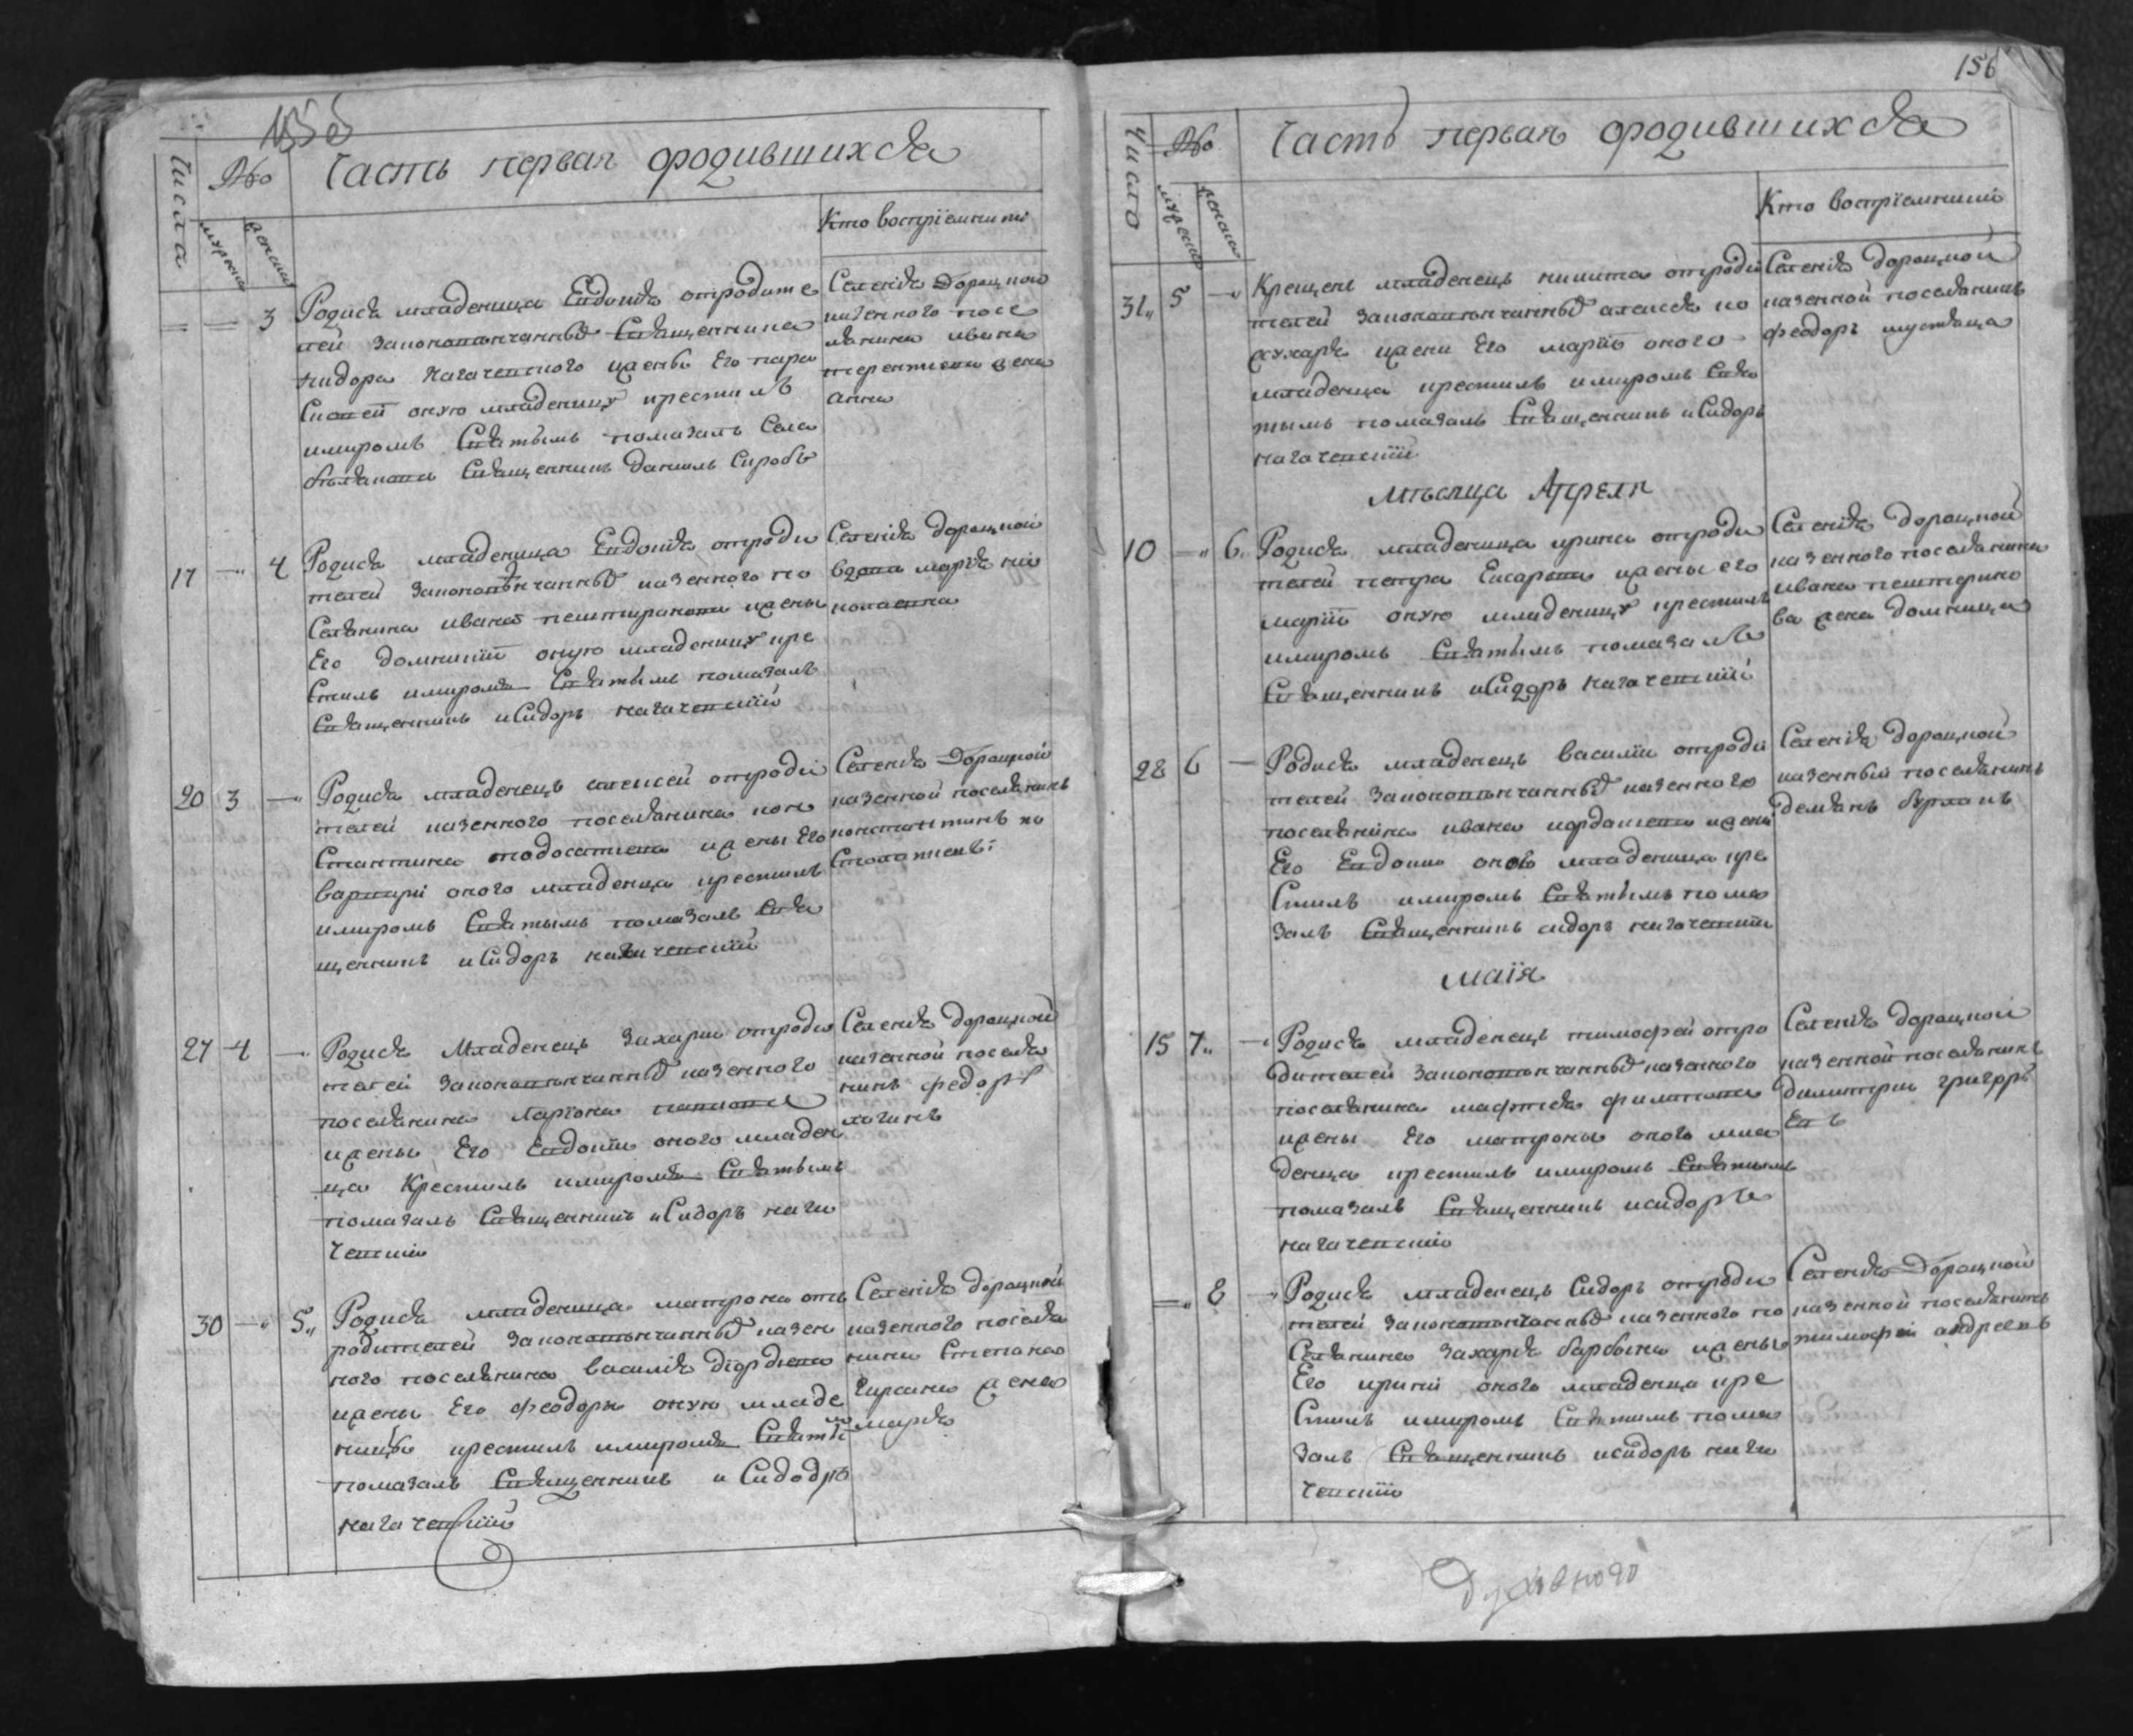 155 об
Числа
№
Часть первая ородившихся
мужеска
женска
Кто восприемники
3
Родися младеница Евдокія отродите
лей законовѣнчанныхъ Священника
Сидора Нагачевского иженѣ его пара
Сковей оную младеницу крестилъ
имиромъ Святымъ помазалъ села
Священникъ Даниилъ
Селенія Дороцкого
казенного посе
лянина ивана
терентиева жена
анна
17 — 4
Родися младеница Евдокія отроди
телей законовѣнчанныхъ казенного по
Селянина ивана ижены
Его домникіи оную младеницу кре
Стилъ имиромъ Святымъ помазалъ
Священникъ иСидоръ нагачевскій
Селенія дороцкой
вдова марія
20 3 —
Родися младенецъ алексей отроди
телей казенного поселянина кон
Стантина тодосатиева ижены Его
варвари оного младенца крестилъ
имиромъ Святымъ помазалъ Свя
щенникъ иСидоръ нагачевскій
Селенія Дороцкой
казенной поселянинъ
константинъ
27 4 —
Родися Младенецъ Захарій отроди
телей законовѣнчанныхъ казенного
поселянина Ларіона
ижены Его Евдокіи оного младен
ца Крестилъ имиромъ Святымъ
помазалъ Священникъ иСидоръ нага
чевскій
Селенія дороцкой
казенной поселя
нинъ федоръ
30 — 5
Родися младеница матрона отъ
родителей законовѣнчанныхъ казен
ного поселянина василія
ижены Его феодори оную младе
ницу крестилъ имиромъ Святы
мъ
помазалъ Священникъ иСидоръ
нагачевскій
Селенія дороцкой
казенного поселя
нина Стефана
жена
марія
156
Число
№
Часть первая ородившихся
мужеска
женска
Кто восприемники
31 5 —
Крещенъ младенецъ никита отроди
телей законовѣнчанныхъ алексея по
ижени Его маріи оного
младенца крестилъ имиромъ Свя
тымъ помазалъ Священникъ иСидоръ
нагачевскій
Селенія дороцкой
казенной поселянинъ
феодоръ мустяца
Мѣсяца Апреля
10 — 6
Родися младеница ирина отроди
телей петра ижены его
маріи оную младеницу крестилъ
имиромъ Святымъ помазалъ
Священникъ иСидоръ нагачевскій
Селенія дороцкой
казенного поселянина
ивана
ва жена домникія
28 6 —
Родися младенецъ василіи отроди
телей законовѣнчанныхъ казенного
поселянина ивана иорданова ижени
Его Евдокіи оного младенца кре
Стилъ имиромъ Святымъ пома
залъ Священникъ сидоръ нагачевскій
Селенія дороцкой
казенный поселянинъ
демянъ бурланъ
маія
15 7 —
Родися младенецъ тимофей отро
дителей законовѣнчанныхъ казенного
поселянина
ижены Его матроны оного мла
денца крестилъ имиромъ Святымъ
помазалъ Священникъ исидоръ
нагачевскій
Селенія дороцкой
казенной поселянинъ
димитрій григорь
евъ
8 —
Родися младенецъ Сидоръ отроди
телей законовѣнчанныхъ казенного по
Селянина Захарія барбына ижены
Его ирини оного младенца кре
Стилъ имиромъ Святымъ пома
залъ Священникъ исидоръ нага
чевскій
Селенія Дороцкой
казенной поселянинъ
тимофей андреевъ
Духовного